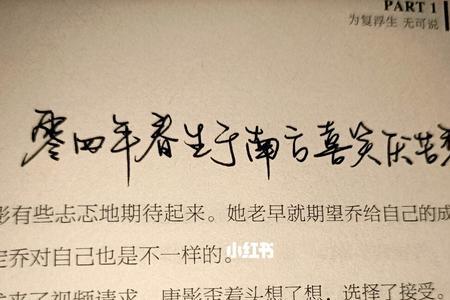 PART 1
为复浮生 无可说
零四年春生于南方喜笑厌苦
小红书
影有些忐忑地期待起来。她老早就期望乔给自己的成
定乔对自己也是不一样的。
唐影歪着头想了想，选择了接受。